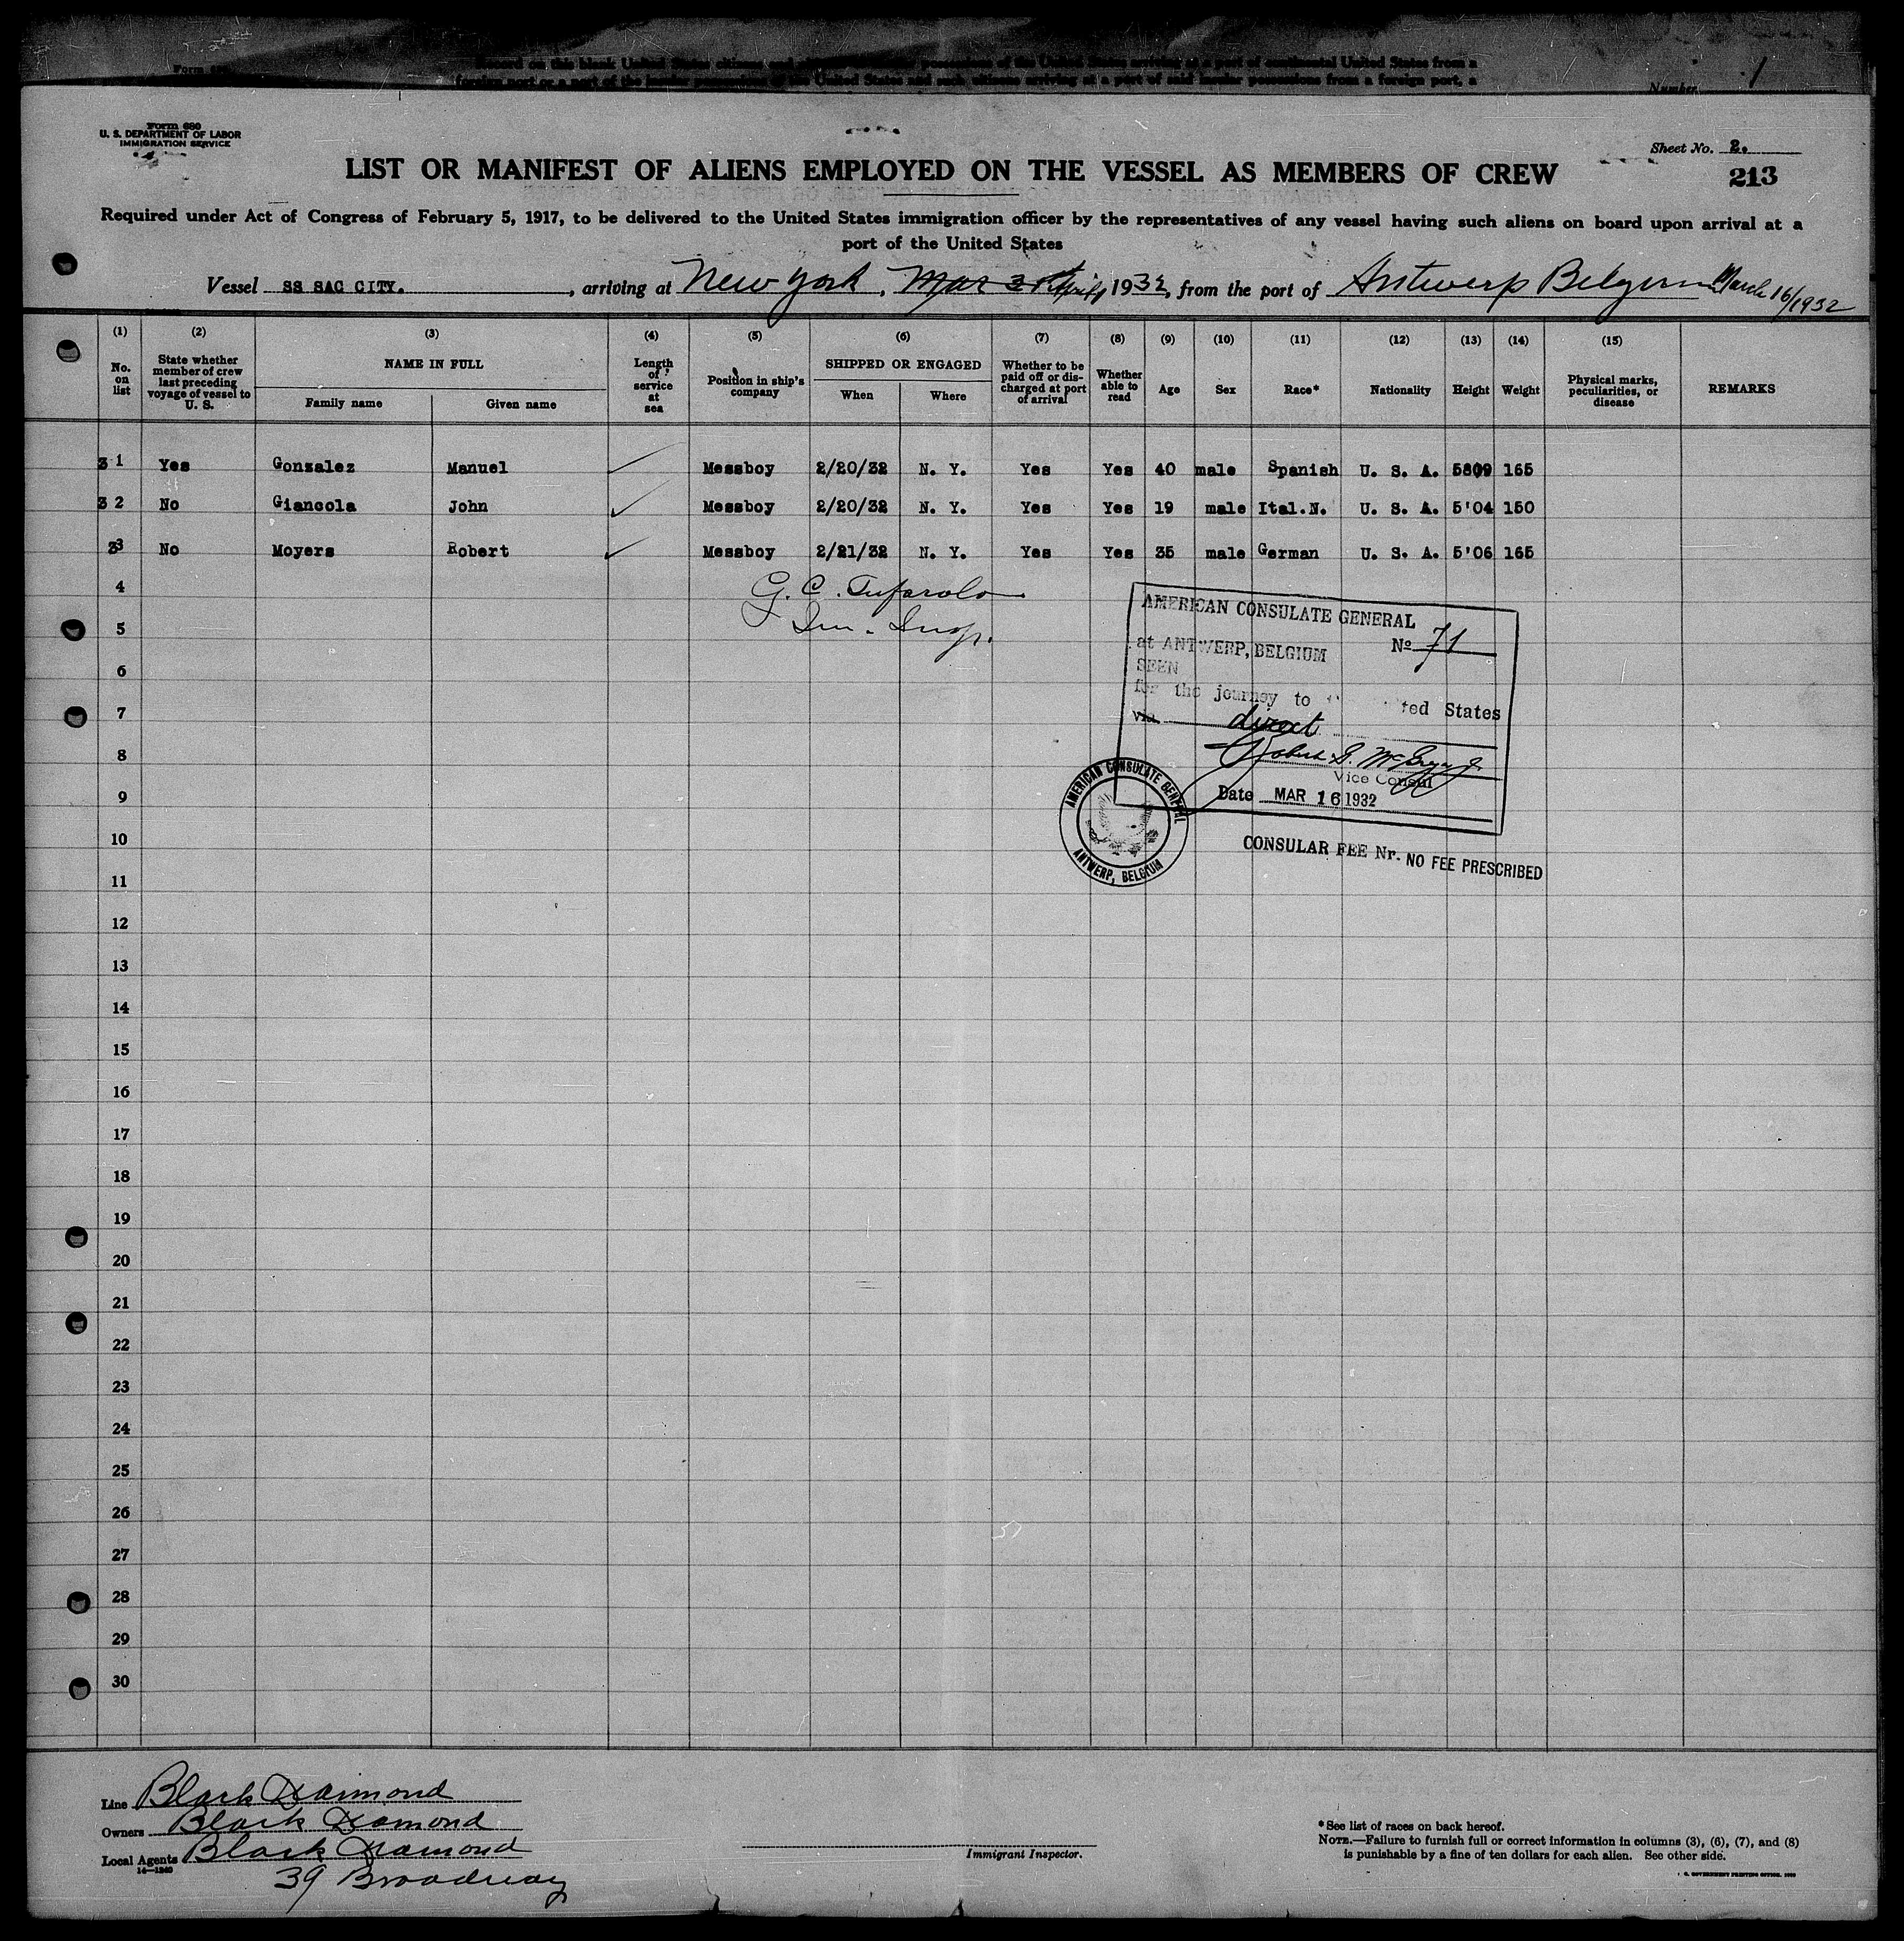 Record on this blank United States citizens and
foreign port or a part of the insular possessions of the United States and such citizens arriving at a port of said insular possessions from a foreign port, a
Number 1
Form 680
U. S. DEPARTMENT OF LABOR
IMMIGRATION SERVICE
Sheet No. 2.
213
LIST OR MANIFEST OF ALIENS EMPLOYED ON THE VESSEL AS MEMBERS OF CREW
Required under Act of Congress of February 5, 1917, to be delivered to the United States immigration officer by the representatives of any vessel having such aliens on board upon arrival at a
port of the United States
Vessel SS SAC CITY. , arriving at New York , Mar April 1932, from the port of Antwerp Belgium March 16/1932
(1) (2) (3) (4) (5) (6) (7) (8) (9) (10) (11) (12) (13) (14) (15)
No. on list
State whether member of crew last preceding voyage of vessel to U. S.
NAME IN FULL
Family name Given name
Length of service at sea
Position in ship's company
SHIPPED OR ENGAGED
When Where
Whether to be paid off or discharged at port of arrival
Whether able to read
Age Sex Race* Nationality Height Weight
Physical marks, peculiarities, or disease
REMARKS
3 1 Yes Gonzalez Manuel Messboy 2/20/32 N. Y. Yes Yes 40 male Spanish U. S. A. 5809 165
3 2 No Giancola John Messboy 2/20/32 N. Y. Yes Yes 19 male Ital.N. U. S. A. 5'04 150
33 No Moyers Robert Messboy 2/21/32 N. Y. Yes Yes 35 male German U. S. A. 5'06 165
4
G. C. Tufarolo
5
Im. Insp.
6
7
8
9
10
11
12
13
14
15
16
17
18
19
20
21
22
23
24
25
26
27
28
29
30
AMERICAN CONSULATE GENERAL
at ANTWERP, BELGIUM No 71
SEEN
for the journey to ted States
via direct
Robert
Vice Consul
Date MAR 16 1932
AMERICAN CONSULATE GENERAL
ANTWERP, BELGIUM
CONSULAR FEE Nr. NO FEE PRESCRIBED
Line Black Daimond
Owners Black Diamond
Local Agents Black Diamond
14—1240
39 Broadway
Immigrant Inspector.
*See list of races on back hereof.
NOTE.—Failure to furnish full or correct information in columns (3), (6), (7), and (8)
is punishable by a fine of ten dollars for each alien. See other side.
GOVERNMENT PRINTING OFFICE